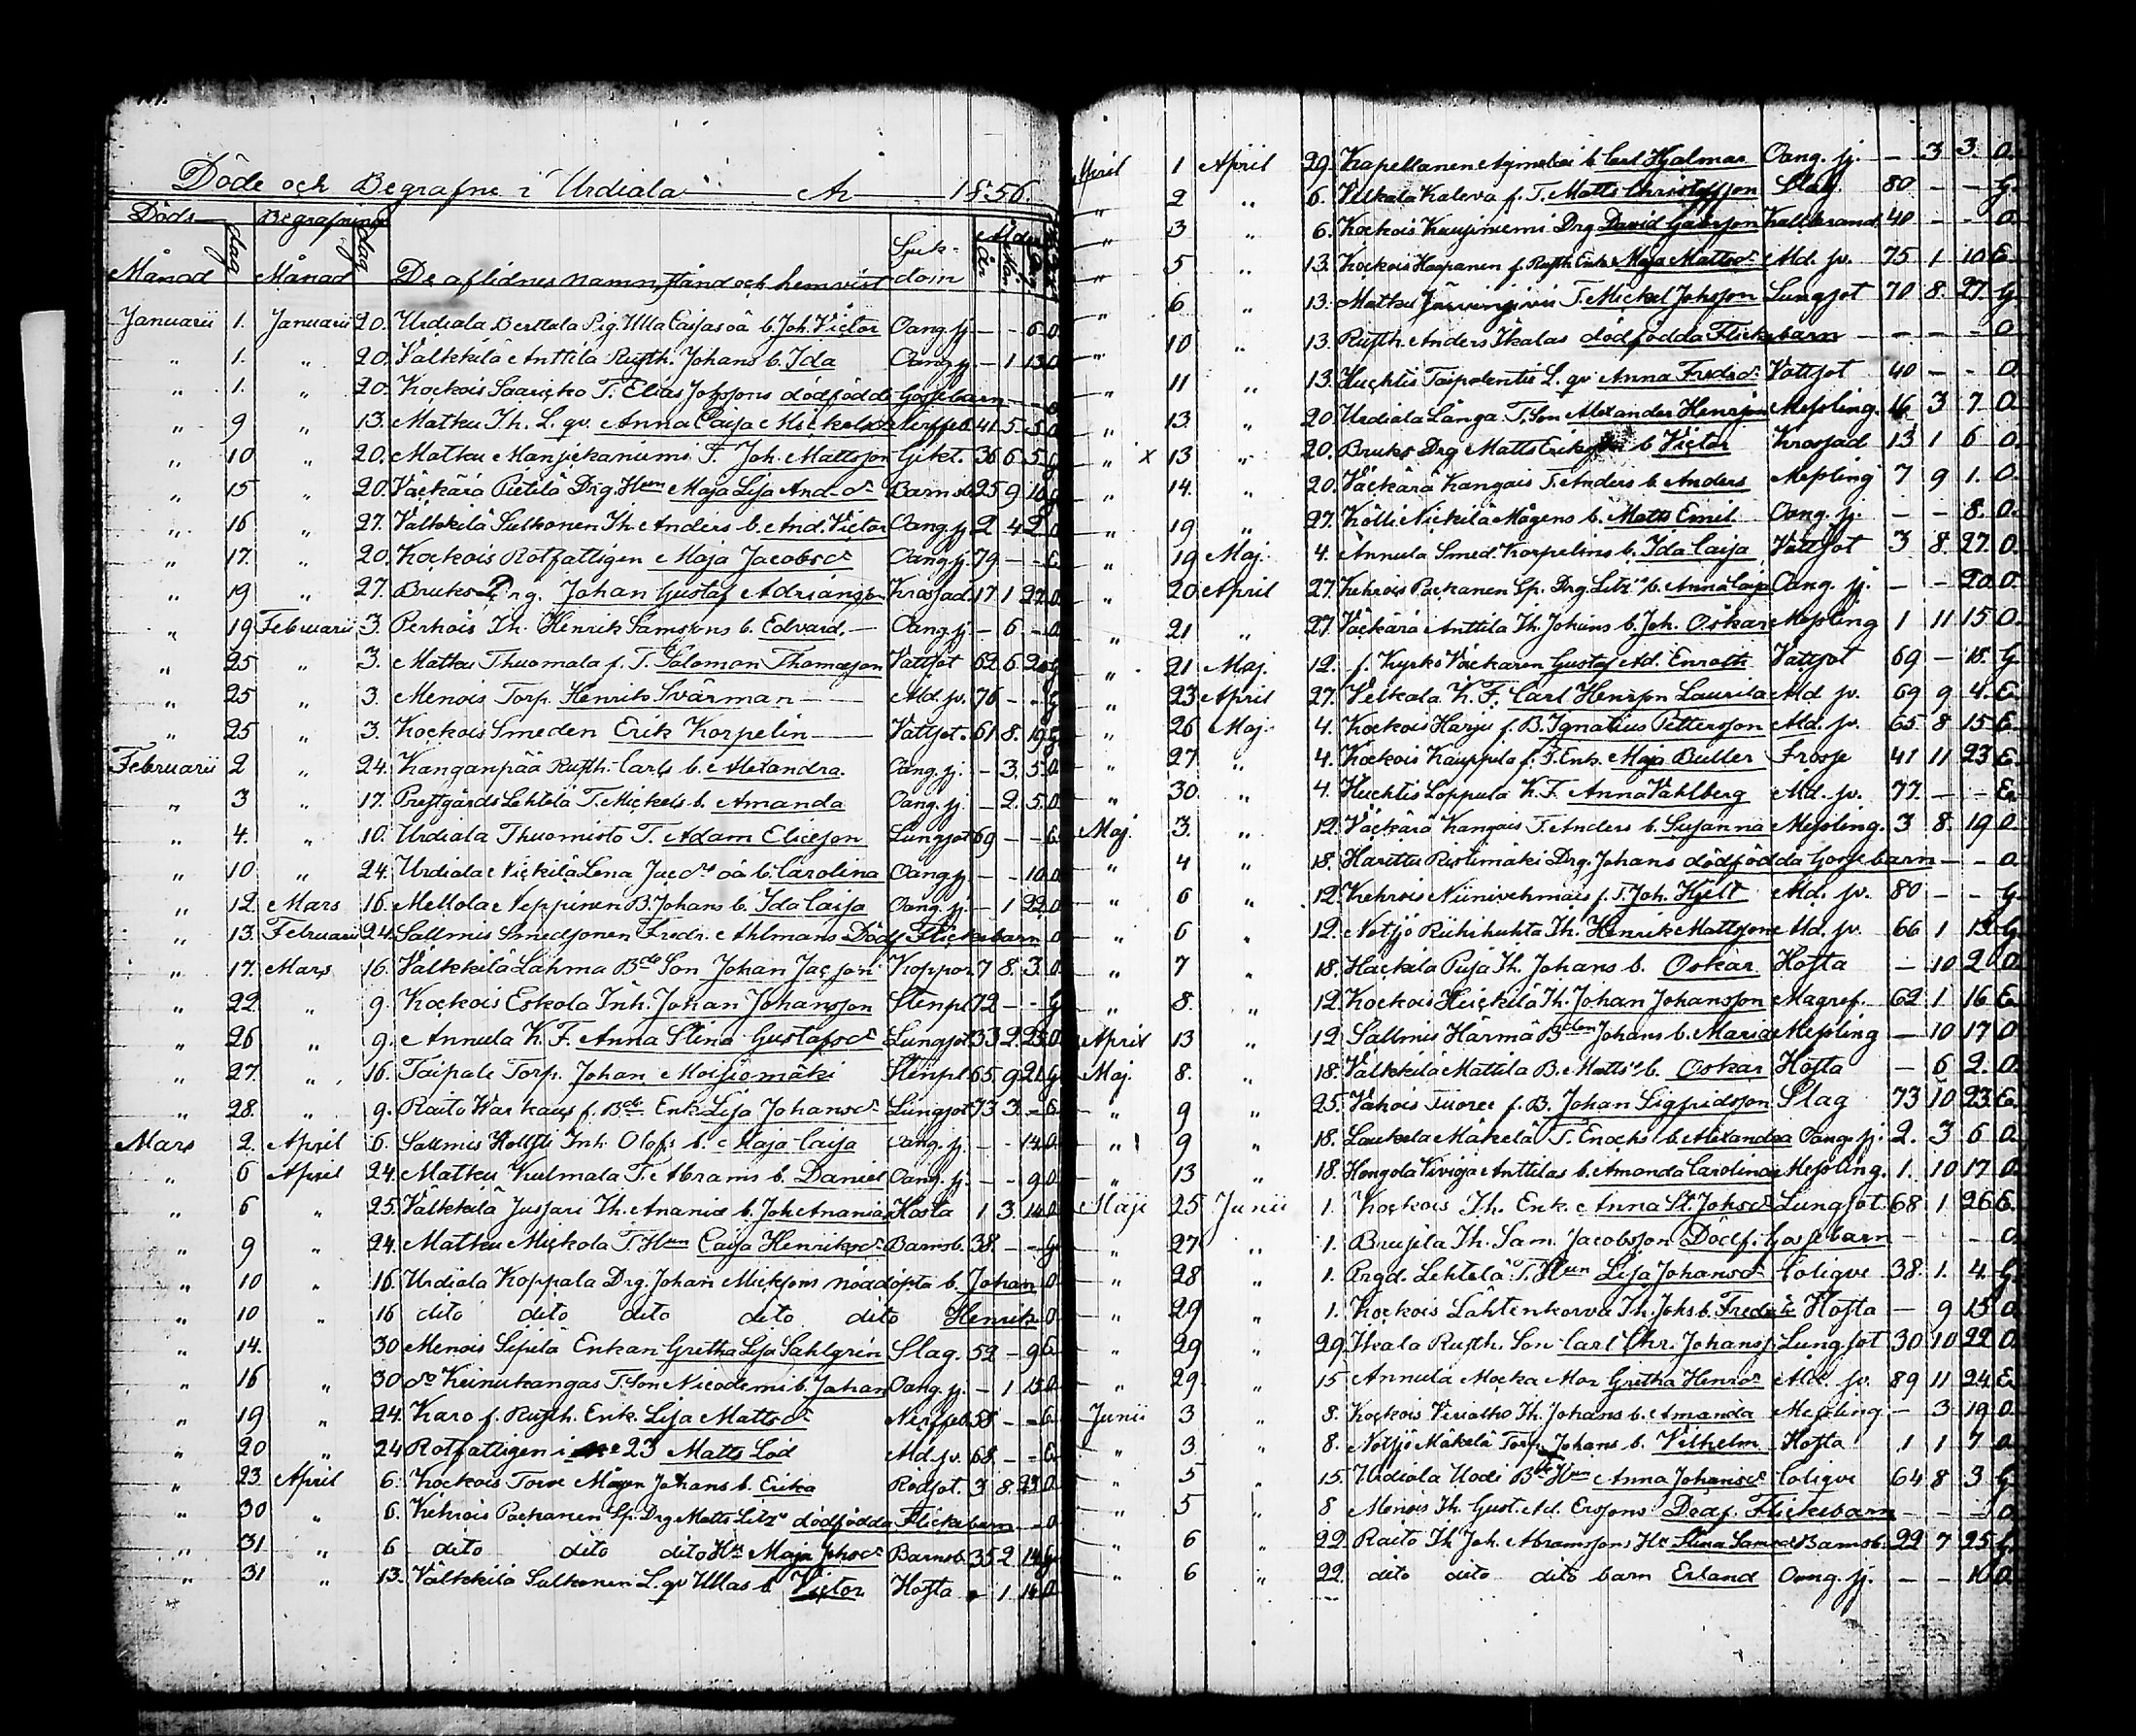 Döde och Begrafne i Urdiala År 1856.
Döds Begrafnings Ålder
Månad dag Månad dag De aflidnes namn, stånd och hemvist Sjuk-dom År Mån. Dag
Januarii 1. Januarii 20. Urdiala Berttala Pig. Ulla Caijas oä b. Joh. Victor Oang. sj. — — 6 O
" 1. " 20. Välkkilä Anttila Rusth. Johans b. Ida Oang. sj. — 1 13 O
" 1. " 20. Kockois Saaricko T. Elias Johssons dödfödde Gossebarn — — O
" 9 " 13. Matku Th. L. qv. Anna Caija Mickelsdr Nerffeb. 41. 5. 5 O
" 10 " 20. Matku Manjekaniemi T. Joh. Mattsson Gikt. 36 6 5 G
" 15 " 20. Väckärä Pietilä Drg. Hun Maja Lisa And.dr Barnsb. 25 9 16 G
" 16 " 27. Välkkilä Sulkonen Th. Anders b. And. Victor Oang. sj. 2 4 2 O
" 17. " 20. Kockois Rotfattigen Maja Jacobsdr Oang. sj. 79 — — E
" 19 " 27. Bruks Drg. Johan Gustaf Adriansson Krossad. 17 1 22 O
" 19 Februarii 3. Perhois Th. Henrik Samssons b. Edvard. — Oang. sj. — 6 — O
" 25 " 3. Matku Thuomala f. T. Salomon Thomasson Vattsot 62 6 20 G
" 25 " 3 Menois Torp. Henrik Svärman — Ald. sv. 76 — — G
" 25 " 3. Kockois Smeden Erik Korpelin — Vattsot. 61. 8. 19 G
Februarii 2 " 24. Kanganpää Rusth. Carls b. Alexandra. Oang. sj. — 3. 5 O
" 3 " 17. Prestgårds Lehtelä T. Mickels b. Amanda Oang. sj. — 2. 5 O
" 4. " 10. Urdiala Thuomisto T. Adam Elicsson Lungsot 69 — — E
" 10 " 24. Urdiala Nickilä Lena Jacdrs oä b. Carolina Oang. sj. — — 10 O
" 12. Mars 16. Mellola Neppinen B. Johans b. Ida Caija Oang. sj. — 1 22 O
" 13. Februarii 24. Sallmis Smedsonen Fredr. Ahlmans Dödf. Flickebarn O
" 17. Mars 16. Välkkilä Lahma Bde Son Johan Jacsson Koppor 7 8. 3. O
" 22. " 9. Kockois Eskola Inh. Johan Johansson Stenpl. 72 — — G
" 26 " 9. Annula K. F. Anna Stina Gustafsdr Lungsot. 33 2. 23. O
" 27. " 16. Taipale Torp. Johan Moisiomäki Stenpl. 65. 9 21. G
" 28. " 9. Raito Warkaus f. Bde Enk. Lisa Johansdr Lungsot 73 3. — E
Mars 2. April 6. Sallmis Inh. Olofs b. Maja Caija Oang. sj. — — 14. O
" 6 April 24. Matku Kulmala T. Abrams b. Daniel Oang. sj. — — 9 O
" 6 " 25. Välkkilä Jussari Th. Ananias b. Joh. Ananias Hosta 1 3. 14 O
" 9 " 24. Matku Mickola T. Hun Caija Henriksdr Barnsb. 38. — — G
" 10 " 16. Urdiala Koppala Drg. Johan Micksons nöddöpta b. Johan O
" 10 " 16 dito dito dito dito dito Henrik O
" 14. 30 Menois Sipilä Enkan Gretha Lisa Sahlgrén Slag. 52 — 9 E
" 16 " 30 do Keinukangas T. Son Nicodemi b. Johan Oang. sj. — 1 13 O
" 19 " 24. Karo f. Rusth. Enk. Lisa Mattsdr Nerffeb. 58 — — E
" 20 " 24 Rotfattigen i 23 Matts Lod Ald. sv. 68. — — E
" 23 April 6. Kockois Torve Mågen Johans b. Erika Rödsot. 3 8. 23 O
" 30 " 6. Kehrois Päckanen Sp. Drg Matts Litzs dödfödda Flickebarn — — O
" 31 " 6 dito dito dito Hu Maja Johsdr Barnsb. 35 2. 14 G
" 31 " 13. Välkkilä Sulkonen L. qv Ullas b. Victor Hosta — 1 14 O
April 1 April 29. Kapellanen b. Carl Hjalmar Oang. sj. — 3 3. O.
" 2 " 6. Velkala Kaleva f. T. Matts Christoffsson Slag. 80 — — G.
" 3 " 6. Kockois Kuusiniemi Drg David Gabrsson Kallbrand. 40 — — O.
" 5 " 13. Kockois Haapanen f. Rusth. Enk. Maja Mattsdr Ald. sv. 75 1 10 E
" 6 " 13. Matku T. Mickel Johsson Lungsot 70 8. 27. G.
" 10 " 13. Rusth. Anders Ikalas dödfödda Flickebarn — — — O
" 11 " 13. Huchtis Taipolentie L. qv Anna Fredsdr Vattsot 40 — — O.
" 13. " 20. Urdiala Långa T. Son Alexander Henrsson Messling. 16 3 7 O.
" x 13 " 20. Bruks Drg Matts Eriksson b. Victor Krossad 13 1 6 O.
" 14. " 20. Väckärä Kangais T. Anders b. Anders Messling 7 9 1. O.
" 19 " 27. Kölli Nickilä Mågens b. Matts Emil. Oang. sj. — — 8. O.
" 19 Maj. 4. Annula Smed. Korpelins b. Ida Caija Vattsot 3 8. 27. O.
" 20 April 27. Kehrois Päckanen Sp. Drg. Litzs b. Anna Caija Oang. sj. — — 20. O.
" 21 " 27. Väckärä Anttila Th. Johans b. Joh. Oskar Messling 1 11 15 O.
" 21 Maj. 12. f. Kyrko Väckaren Gustaf Ad. Enroth Vattsot 69 — 15. G
" 23 April 27. Velkala K. F. Carl Henrsson Laurila Ald. sv. 69 9 4. E.
" 26 Maj. 4. Kockois Harju f. B. Ignatius Pettersson Ald. sv. 65. 8 15 E.
" 27 " 4. Kockois Kauppila f. T. Enk. Maja Buller Frosse 41 11 23 E.
" 30. " 4. Huchtis Loppula K. F. Anna Vahlberg Ald. sv. 77. — — E.
Maj. 3. " 12. Väckärä Kangais T. Anders b. Susanna Messling. 3 8. 19 O.
" 4 " 18. Haritta Ristimäki Drg. Johans dödfödda Gossebarn — — O.
" 6 " 12. Kehrois Niinivehmais f. T. Joh. Hjelt Ald. sv. 80 — — G.
" 6 " 12. Notsjö Riihihuhta Th. Henrik Mattsson Ald. sv. 66 1 13 G.
" 7 " 18. Hackila Puja Th. Johans b. Oskar Hosta — 10 2 O.
" 8. " 12. Kockois Heickilä Th. Johan Johansson Magref. 62 1 16 E.
April 13 " 12 Sallmis Härmä Bden Johans b. Maria Messling — 10 17 O.
Maj. 8. " 18. Välkkilä Mattila B. Matts b. Oskar Hosta — 6 2. O.
" 9 " 25. Vahois Tuoree f. B. Johan Sigfridsson Slag 73 10 23. E.
" 9 " 18. Laukela Mäkelä T. Enochs b. Alexandra Oang. sj. 2. 3 6 O.
" 13 " 18. Hongola Anttilas b. Amanda Carolina Messling. 1. 10 17 O.
Maji 25 Junii 1. Kockois Th. Enk. Anna St. Johsdr Lungsot. 68 1 26 E.
" 27 " 1. Brusila Th. Sam. Jacobsson Dödf. Gossebarn — — — O.
" 28 " 1. Prgd. Lehtelä T. Hun Lisa Johansdr Colique 38. 1. 4. G
" 29 " 1. Kockois Lähtenkorva Th. Johs b. Fredric Hosta — 9 15 O.
" 29 " 29. Ikala Rusth. Son Carl Chr. Johanss. Lungsot 30 10 22 O.
" 29 " 15 Annula Mocka Mor Gretha Henrsdr Ald. sv. 89 11 24 E
Junii 3 " 8. Kockois Th. Johans b. Amanda Messling — 3 19 O.
" 3 " 8. Notsjö Mäkelä Torp. Johans b. Vilhelm Hosta 1 1 7 O
" 5 " 15. Urdiala Uodi Bde Hun Anna Johansdr Colique 64 8 3 G
" 5 " 8 Menois Th. Gust. Ad. Ersons Dödf. Flickebarn — — — O
" 6 " 22 Raito Th. Joh. Abramssons Hu Stina Samsdr Barnsb. 22 7 25 G.
" 6 " 22. dito dito dito barn Erland Oang. sj. — — 10 O.